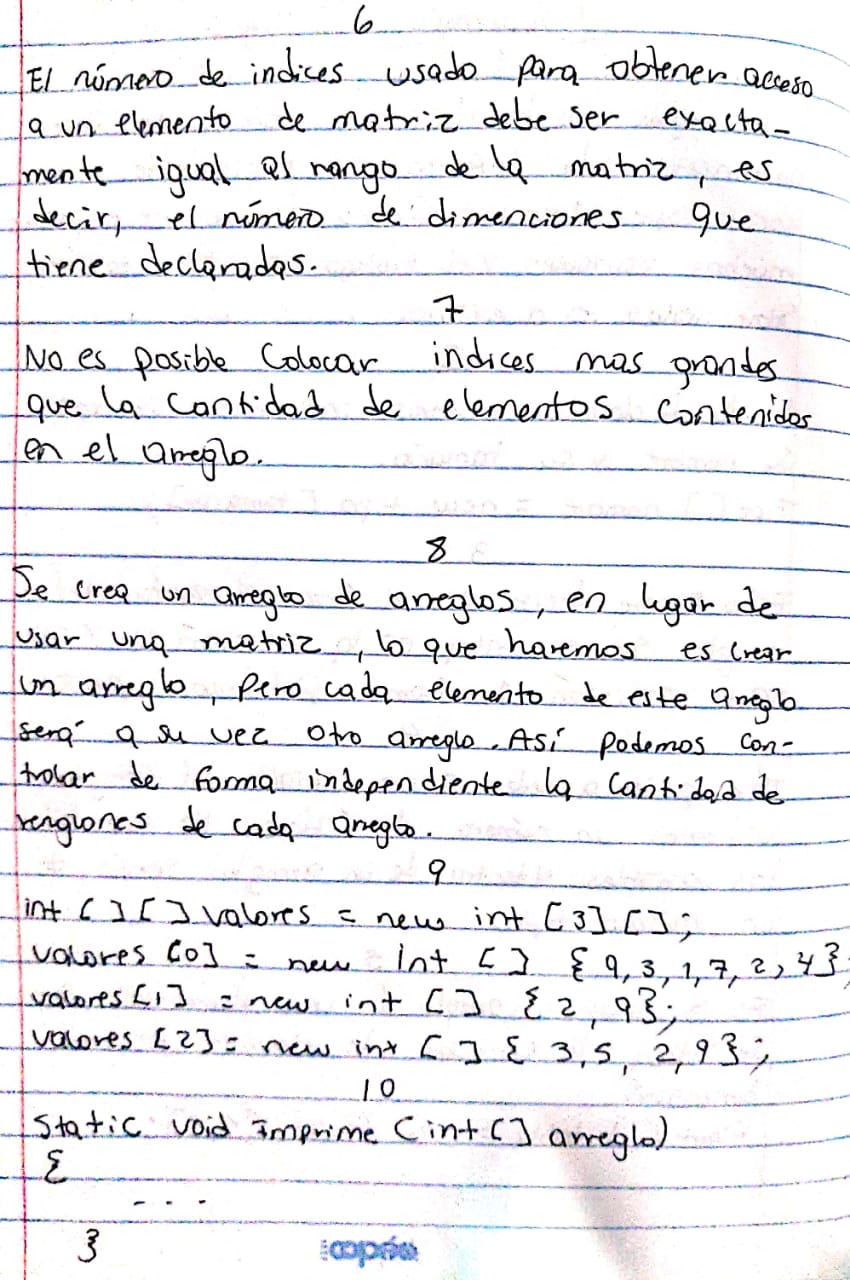 6
El número de indices usado para obtener acceso
a un elemento de matriz debe ser exacta-
mente igual al rango de la matriz, es
decir, el número de dimenciones que
tiene declaradas.
7
No es posible Colocar indices mas grandes
que la Cantidad de elementos Contenidos
en el arreglo.
8
Se crea un arreglo de arreglos, en lugar de
usar una matriz, lo que haremos es crear
un arreglo, pero cada elemento de este arreglo
será a su vez otro arreglo. Así podemos con-
trolar de forma independiente la Cantidad de
renglones de cada arreglo.
9
int [ ] [ ] valores = new int [3] [ ];
valores [0] = new int [ ] { 9, 3, 1, 7, 2, 4};
valores [1] = new int [ ] { 2, 9};
valores [2] = new int [ ] { 3, 5, 2, 9};
10
Static void Imprime (int [ ] arreglo)
{
- . . .
}